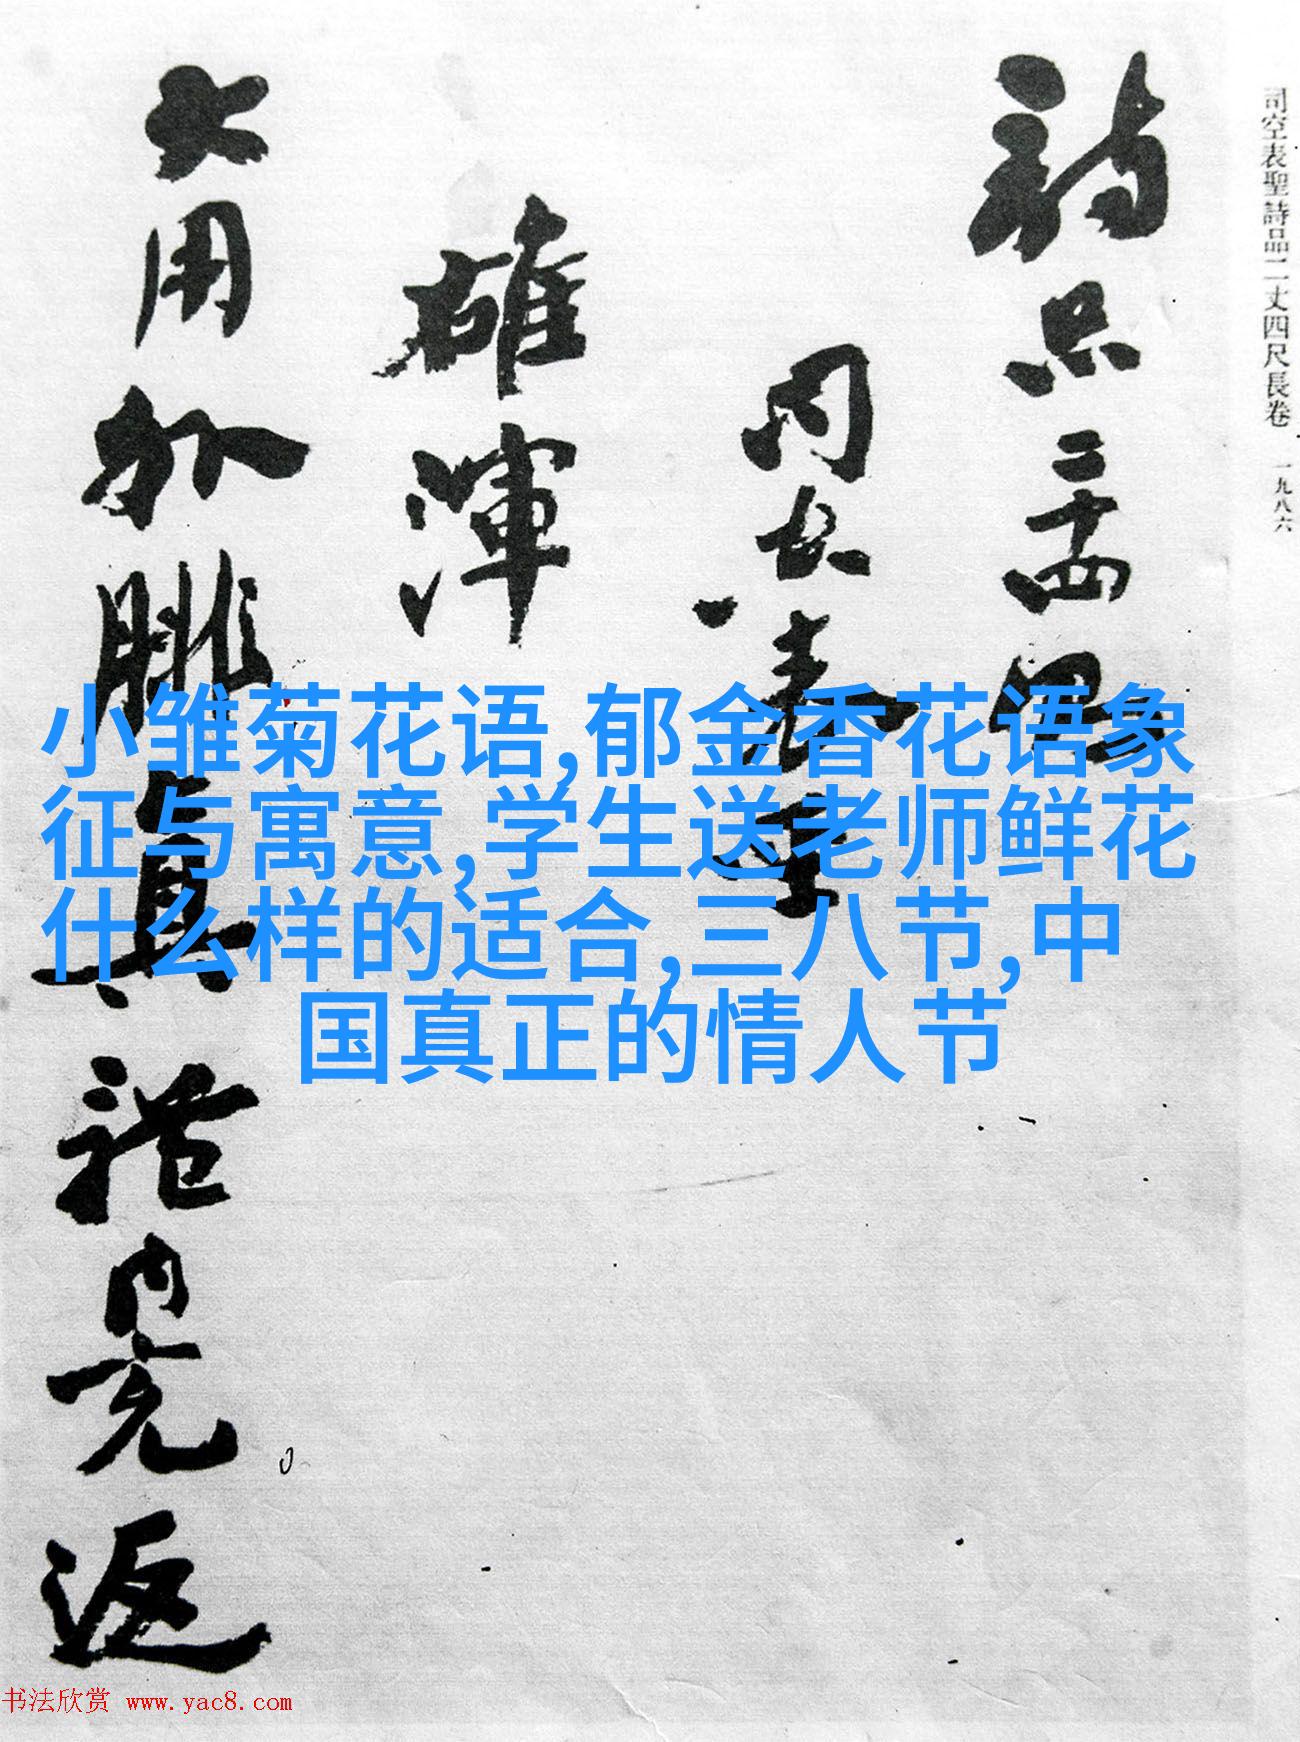 司空表聖詩品二丈四尺長卷 一九八六
詩品二十四則
司空表聖
雄渾
大用外腓真體内充返
小雏菊花语,郁金香花语象
征与寓意,学生送老师鲜花
什么样的适合,三八节,中
国真正的情人节
书法欣赏 www.yac8.com